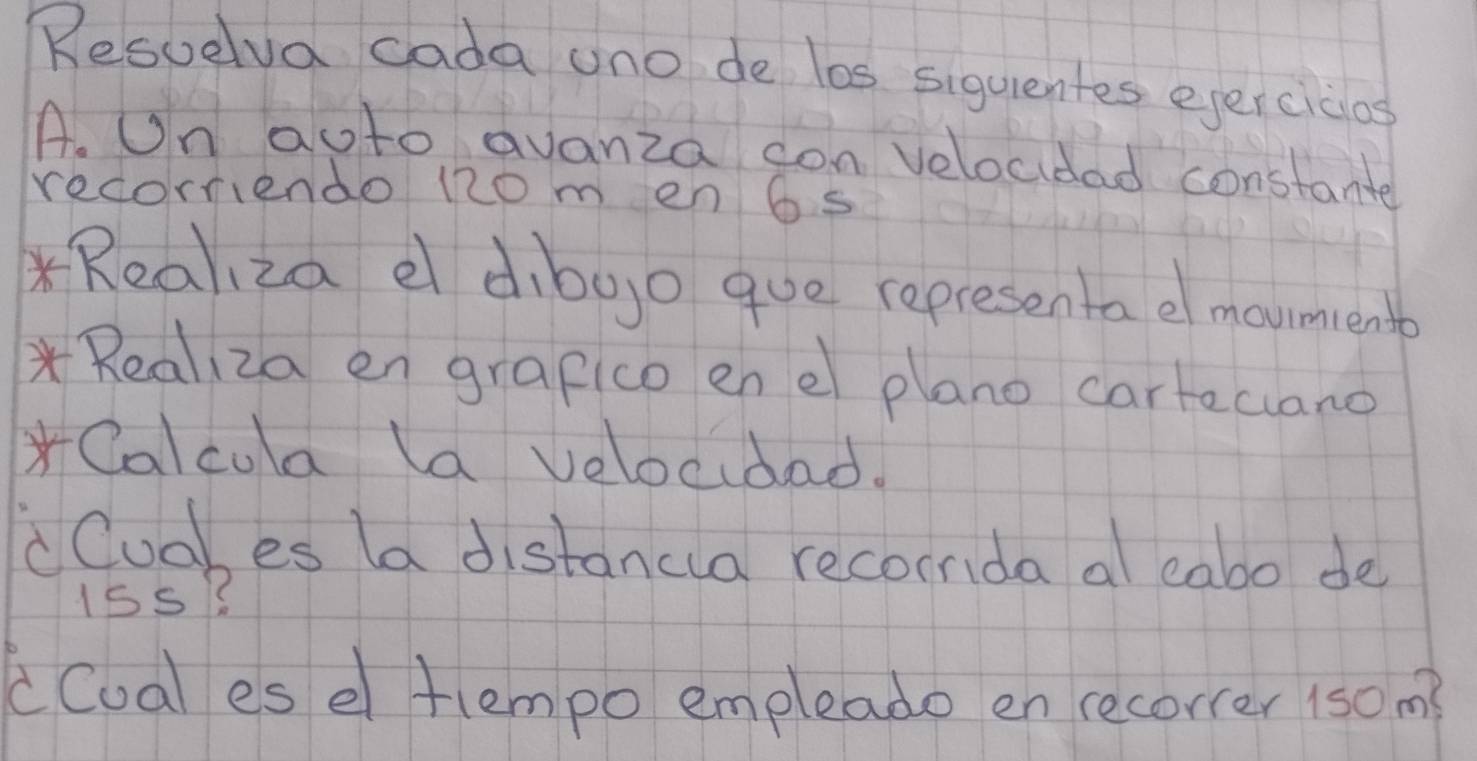 Resuelva cada uno de los siguientes ejercicios
A. Un auto avanza con velocidad constante
recorriendo 120 m en 6s
*Realiza el dibujo que representa el movimiento
*Realiza en grafico en el plano carteciano
*Calcula la velocidad.
¿Cual es la distancia recorrida al cabo de
15s?
¿Cual es el tiempo empleado en recorrer 150m?